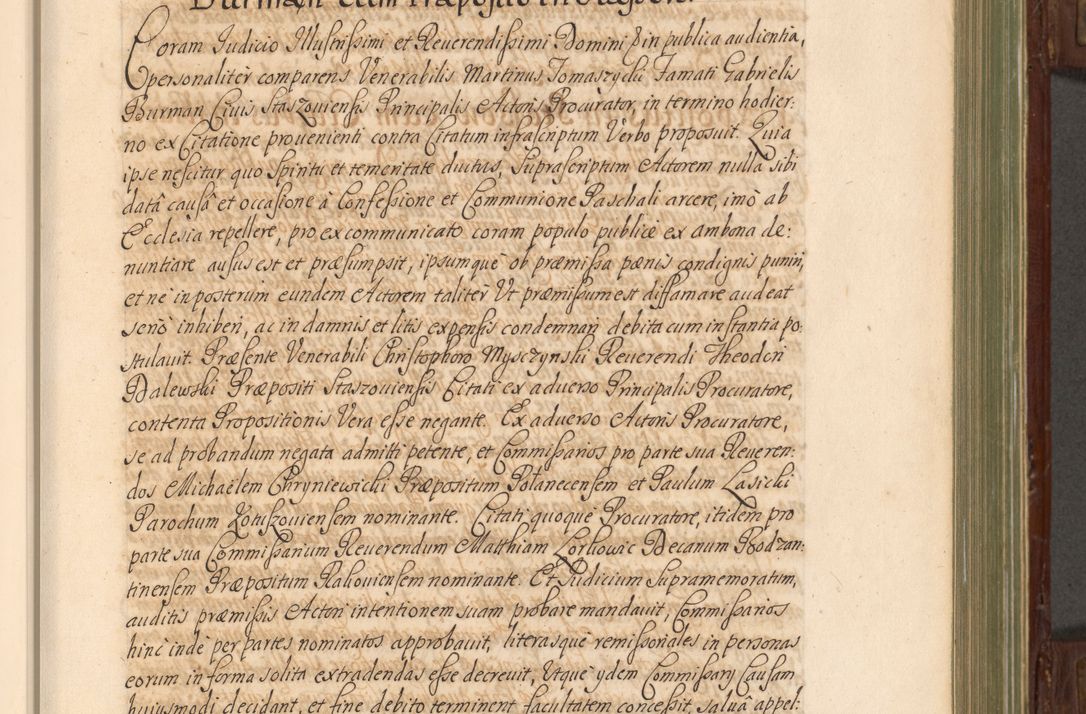 Burman cum Præposito
Coram Iudicio Illustrissimi et Reuerendissimi Domini in publica audientia,
personalitèr comparens Venerabilis Martinus Tomaszycki Famati Gabrielis
Burman Ciuis Staszouiensis Principalis Actoris Procurator, in termino hodier:
no ex Citatione prouenienti contra Citatum infrascriptum Verbo proposuit. Quia
ipse nescitur quo Spiritu et temeritate ductus, Suprascriptum Actorem nullâ sibi
datâ causâ et occasione à Confessione et Communione Paschali arcere, imò ab
Ecclesia repellere, pro excommunicato coram populo publicè ex ambona de:
nuntiare ausus est et præsumpsit, ipsumque ob præmissa pænis condignis puniri,
et nè in posterum eundem Actorem talitèr Vt præmissum est diffamare audeat
seriò inhiberi, ac in damnis et litis expensis condemnari debita cum instantia po:
stulauit. Præsente Venerabili Christophoro Mysczynski Reuerendi Theodori
Dalewski Præpositi Staszouiensis Citati ex aduerso Principalis Procuratore,
contenta Propositionis Vera esse negante. Ex aduerso Actoris Procuratore,
se ad probandum negata admitti petente, et Commissarios pro parte sua Reueren:
dos Michaëlem Chryniewicki Præpositum Polanecensem et Paulum Lasicki
Parochum Kotuszouiensem nominante. Citati quoquè Procuratore, itidem pro
parte sua Commissarium Reuerendum Matthiam Lorkowic Decanum Bodzan:
tinensem Præpositum Rakouiensem nominante. Et Iudicium Supramemoratum,
auditis præmissis Actori intentionem suam probare mandauit, Commissarios
hinc indè per partes nominatos approbauit, literasquè remissoriales in personas
eorum in forma solita extradendas esse decreuit, Vtquè ydem Commissarij Causam
huiusmodi decidant, et fine debito terminent facultatem concessit, saluâ appel: